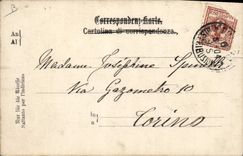 B
Correspondenz-Karte.
Cartolina di corrispondenza.
An
Al
Madame Joséphine
Via Gazometro 10
in
a
Torino
Nur für die Adresse
Soltanto per l'indirizzo